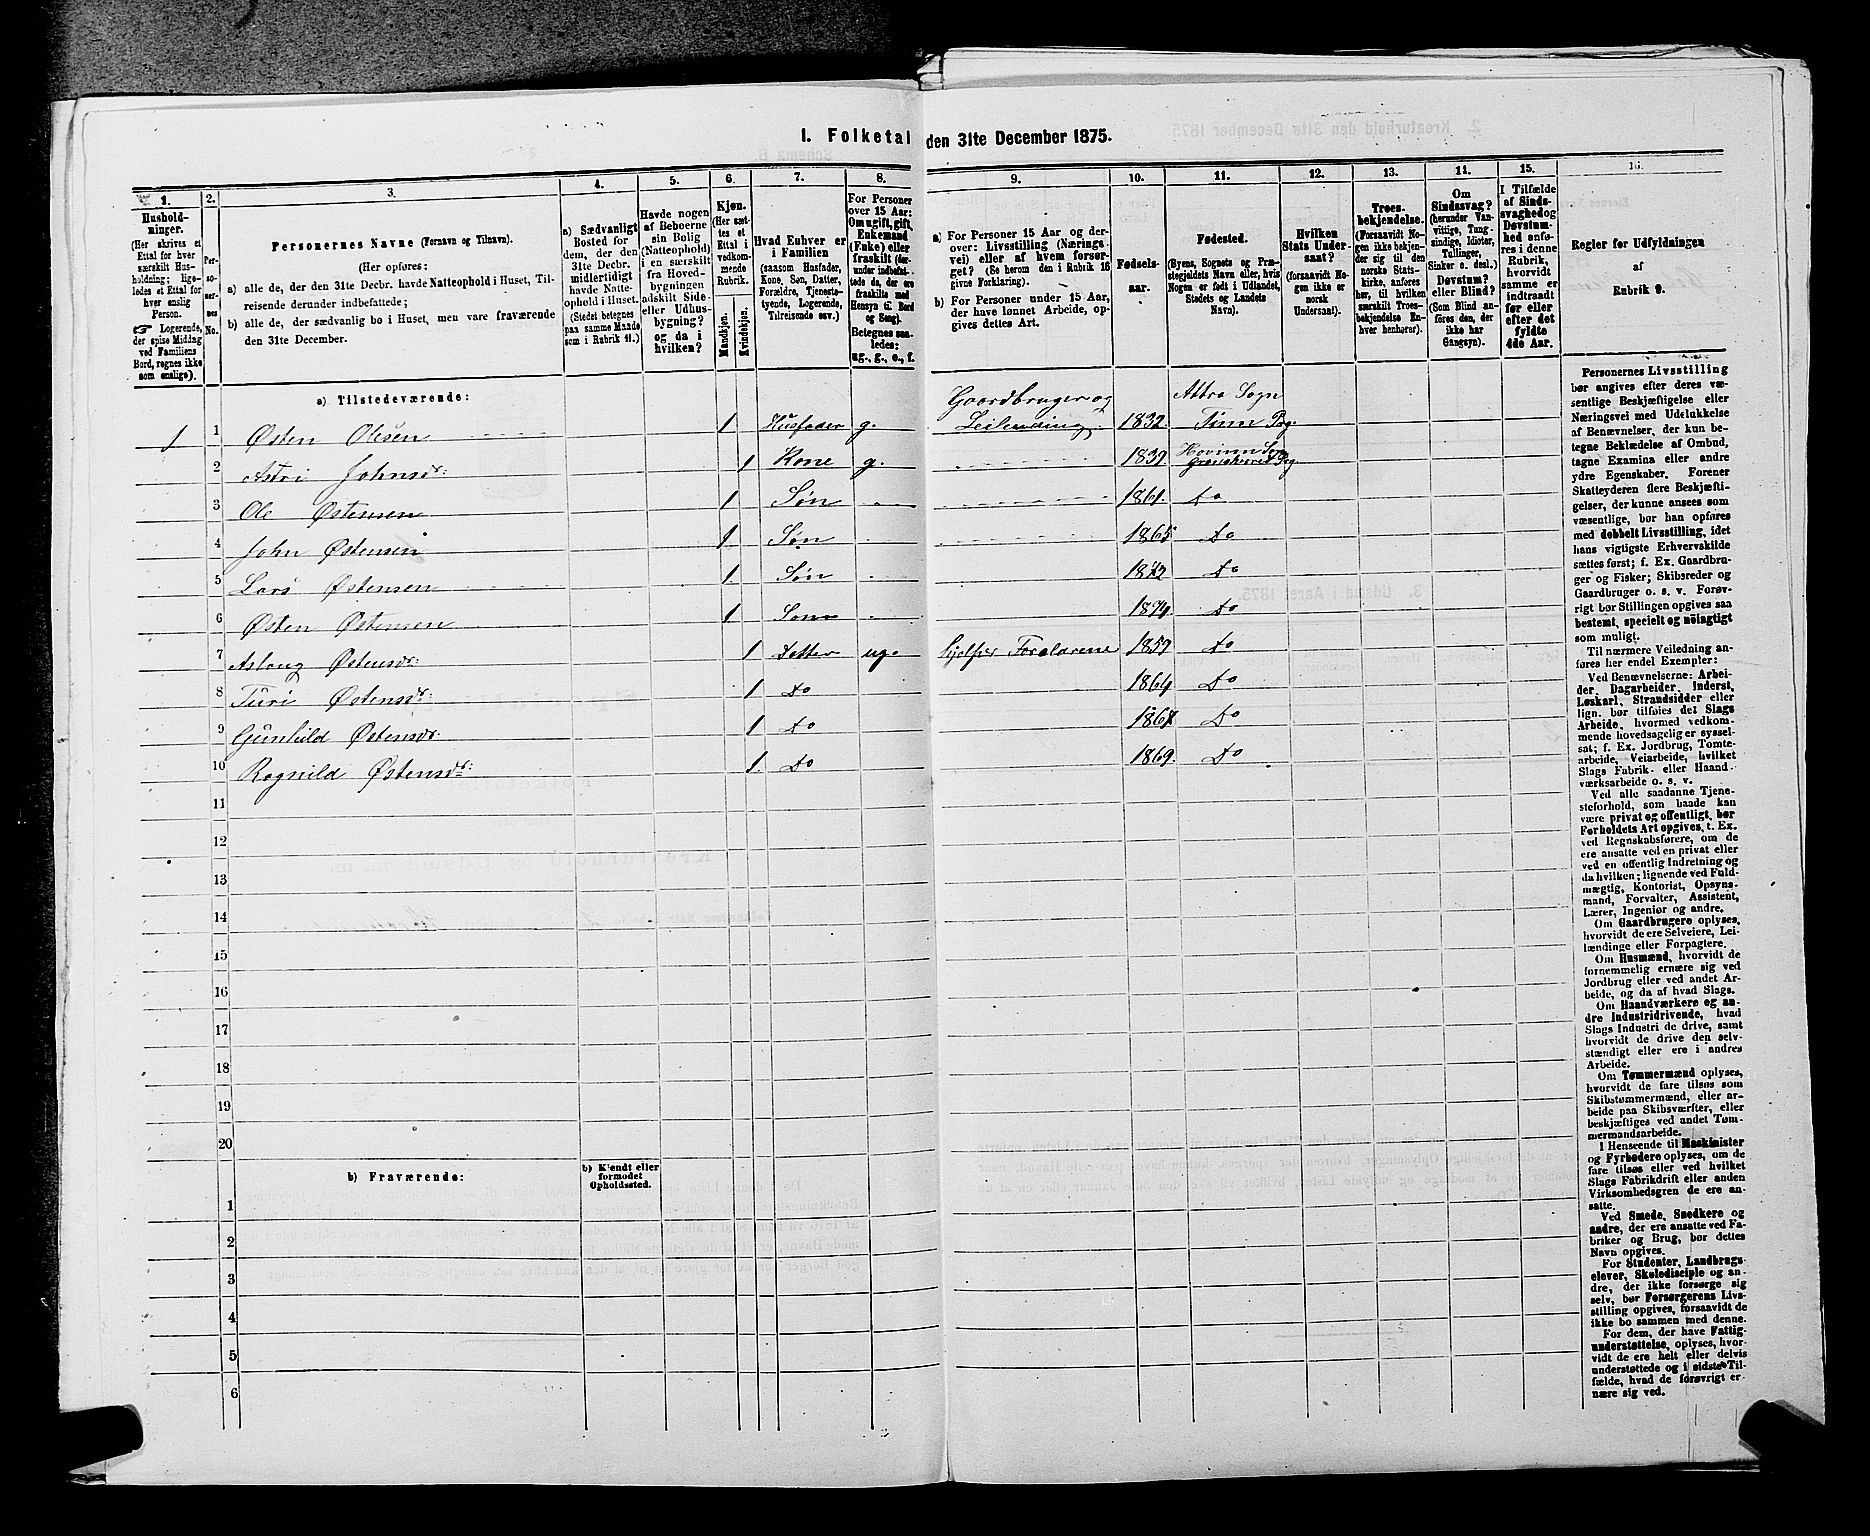 1. Folketal den 31te December 1875.
1.
2.
3.
4.
5.
6.
7.
8.
9.
10.
11.
12.
13.
14.
15.
16.
Hushold-
ninger.
(Her skrives et
Ettal for hver
særskilt Hus-
holdning; lige-
ledes et Ettal for
hver enslig
Person.
☞ Logerende,
der spise Middag
ved Familiens
Bord, regnes ikke
som enslige).
Per-
so-
ner-
nes
No.
Personernes Navne (Fornavn og Tilnavn).
(Her opføres:
a) alle de, der den 31te Decbr. havde Natteophold i Huset, Til-
reisende derunder indbefattede;
b) alle de, der sædvanlig bo i Huset, men vare fraværende
den 31te December.
a) Sædvanligt
Bosted for
dem, der den
31te Decbr.
midlertidigt
havde Natte-
ophold i Huset.
(Stedet betegnes
paa samme Maade
som i Rubrik 11.)
Havde nogen
af Beboerne
sin Bolig
(Natteophold)
i en særskilt
fra Hoved-
bygningen
adskilt Side-
eller Udhus-
bygning?
og da i
hvilken?
Kjøn.
(Her sæt-
tes et
Ettal i
vedkom-
mende
Rubrik.
Mandkjøn.
Kvindekjøn.
Hvad Enhver er
i Familien
(saasom Husfader,
Kone, Søn, Datter,
Forældre, Tjeneste-
tyende, Logerende,
Tilreisende osv.)
For Personer
over 15 Aar:
Om ugift, gift,
Enkemand
(Enke) eller
fraskilt (der-
under indbefat-
tede da, der ere
fraskilte med
Hensyn til Bord
og Seng).
Betegnes saa-
ledes:
ug., g., e., f.
a) For Personer 15 Aar og der-
over: Livsstilling (Nærings-
vei) eller af hvem forsør-
get? (Se herom den i Rubrik 16
givne Forklaring).
b) For Personer under 15 Aar,
der have lønnet Arbeide, op-
gives dettes Art.
Fødsels-
aar.
Fødested.
(Byens, Sognets og Præ-
stegjeldets Navn eller, hvis
Nogen er født i Udlandet,
Stedets og Landets
Navn).
Hvilken
Stats Under-
saat?
(forsaavidt No-
gen ikke er
norsk
Undersaat).
Troes-
bekjendelse.
(Forsaavidt No-
gen ikke bekjen-
der sig til den
norske Stats-
kirke, anføres
her, til hvilken
særskilt Troes-
bekjendelse En-
hver henhører).
Om
Sindssvag?
(herunder Van-
vittige, Tung-
sindige, Idioter,
Tullinger,
Sinker o. desl.)
Døvstum?
eller Blind?
(Som Blind an-
føres den, der
ikke har
Gangsyn).
I Tilfælde
af Sinds-
svaghed og
Døvstum-
hed anfø-
res i denne
Rubrik,
hvorvidt
samme er
indtraadt
før eller
efter det
fyldte
4de Aar.
Regler for Udfyldningen
af
Rubrik 9.
a) Tilstedeværende:
1 1 Østen Olesen 1 Husfader g. Gaardbruger og Leilending 1832. Attra Sogn Tinn Pg.
2 Astri Johnsdr: 1 Kone g. 1839 Hovinn Sogn Grandsherred Pg
3 Ole Østensen 1 Søn 1861. Do
4 John Østensen 1 Søn 1865 Do
5 Lars Østensen 1 Søn 1872 Do
6 Østen Østensen 1 Søn 1874 Do
7 Aslaug Østensdr: 1 Datter ug. hjelper Forældrene 1859 Do
8 Turi Østensdr: 1 Do 1864 Do
9 Gunhild Østensdr. 1 Do 1867 Do
10 Ragnild Østensdr: 1 Do 1869. Do
11
12
13
14
15
16
17
18
19
20
b) Fraværende:
b) Kjendt eller
formodet
Opholdssted.
1
2
3
4
5
6
Personernes Livsstilling
bør angives efter deres væ-
sentlige Beskjæftigelse eller
Næringsvei med Udelukkelse
af Benævnelser, der kun be-
tegne Beklædelse af Ombud,
tagne Examina eller andre
ydre Egenskaber. Forener
Skatteyderen flere Beskjæfti-
gelser, der kunne ansees som
væsentlige, bør han opføres
med dobbelt Livsstilling, idet
hans vigtigste Erhvervskilde
sættes først; f. Ex. Gaardbru-
ger og Fisker; Skibsreder og
Gaardbruger o. s. v. Forøv-
rigt bør Stillingen opgives saa
bestemt, specielt og nøiagtigt
som muligt.
Til nærmere Veiledning an-
føres her endel Exempler:
Ved Benævnelserne: Arbei-
der, Dagarbeider, Inderst,
Løskarl, Strandsidder eller
lign. bør tilføies det Slags
Arbeide, hvormed vedkom-
mende hovedsagelig er syssel-
sat; f. Ex. Jordbrug, Tomte-
arbeide, Veiarbeide, hvilket
Slags Fabrik- eller Haand-
værksarbeide o. s. v.
Ved alle saadanne Tjene-
steforhold, som baade kan
være privat og offentligt, bør
Forholdets Art opgives, t. Ex.
ved Regnskabsførere, om de
ere ansatte ved en privat eller
ved en offentlig Indretning og
da hvilken; lignende ved Fuld-
mægtig, Kontorist, Opsyns-
mand, Forvalter, Assistent,
Lærer, Ingeniør og andre.
Om Gaardbrugere oplyses,
hvorvidt de ere Selveiere, Lei-
lændinge eller Forpagtere.
Om Husmænd, hvorvidt de
fornemmelig ernære sig ved
Jordbrug eller ved andet Ar-
beide, og da af hvad Slags.
Om Haandværkere og an-
dre Industridrivende, hvad
Slags Industri de drive, samt
hvorvidt de drive den selv-
stændigt eller ere i andres
Arbeide.
Om Tømmermænd oplyses,
hvorvidt de fare tilsøs som
Skibstømmermænd, eller ar-
beide paa Skibsværfter, eller
beskjæftiges ved andet Tøm-
mermandsarbeide.
I Henseende til Maskinister
og Fyrbødere oplyses, om de
fare tilsøs eller ved hvilket
Slags Fabrikdrift eller anden
Virksomhedsgren de ere an-
satte.
Ved Smede, Snedkere og
andre, der ere ansatte ved Fa-
briker og Brug, bør dettes
Navn opgives.
For Studenter, Landbrugs-
elever, Skoledisciple og an-
dre, der ikke forsørge sig
selv, bør Forsørgerens Livs-
stilling opgives, forsaavidt de
ikke bo sammen med denne.
For dem, der have Fattig-
understøttelse, oplyses, hvor-
vidt de ere helt eller delvis
understøttede og i sidste Til-
fælde, hvad de forøvrigt er-
nære sig ved.